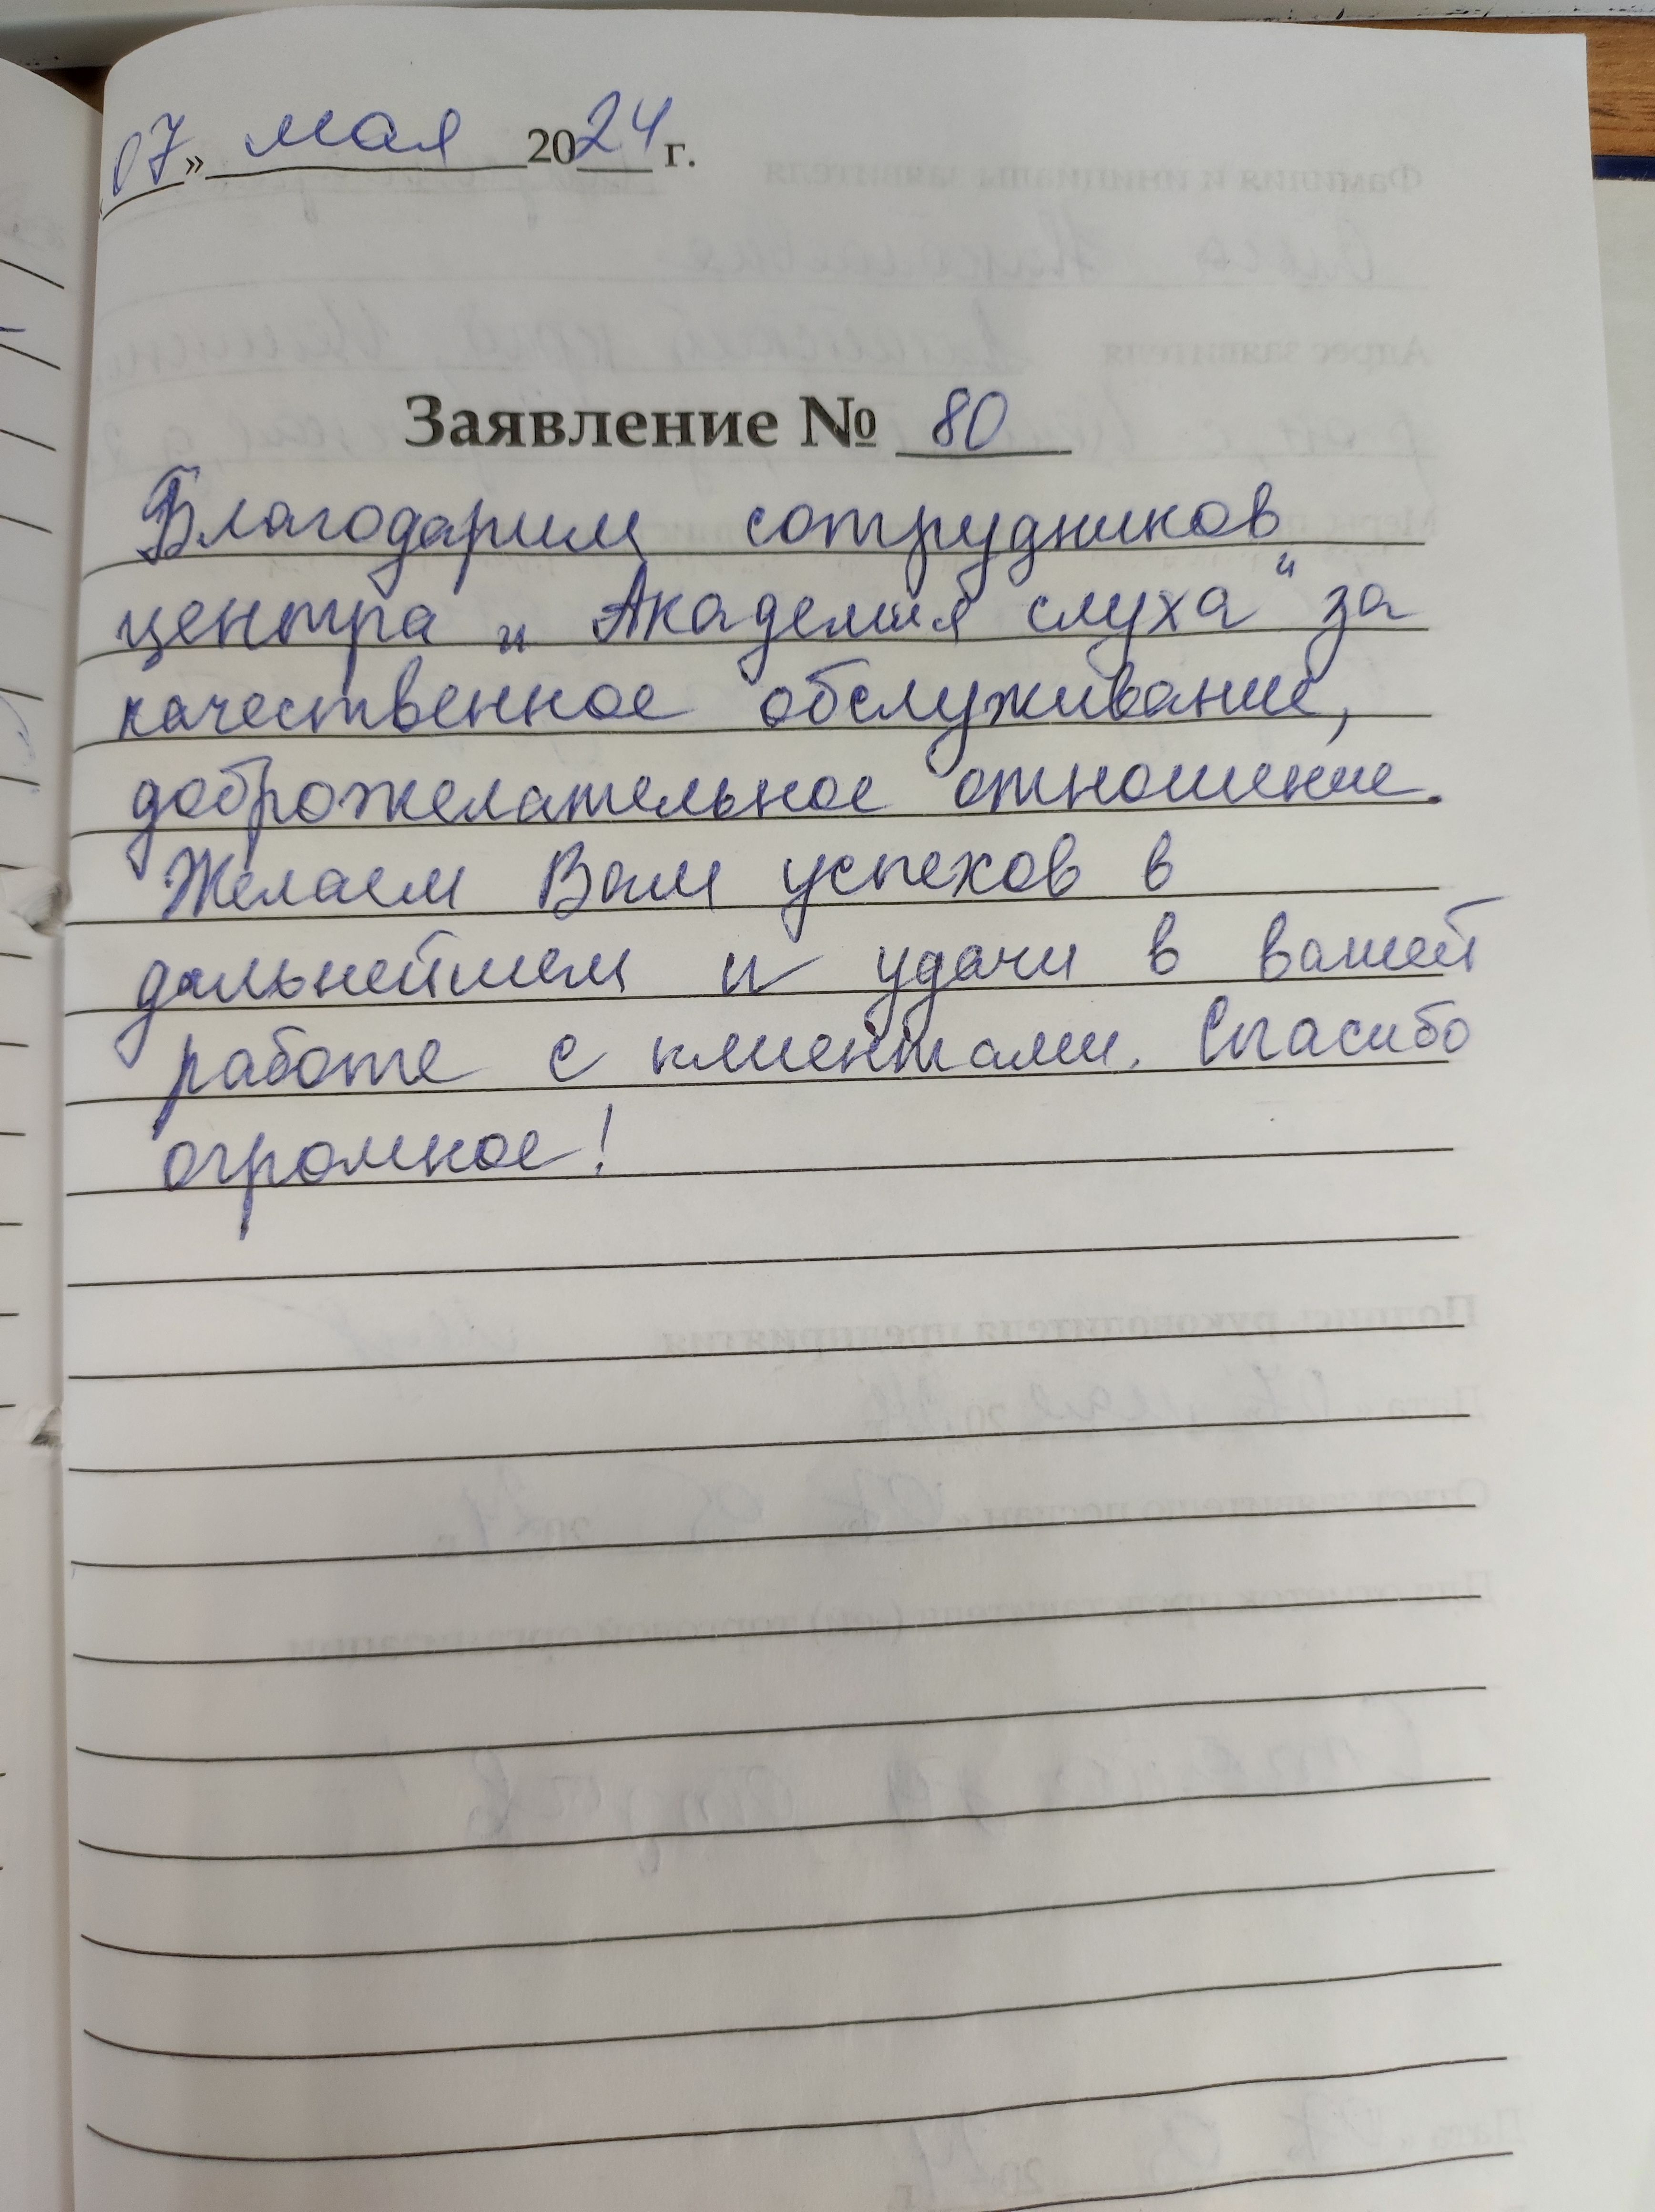 07» мая 2024 г.
Заявление № 80
Благодарим сотрудников
центра „Академия слуха“ за
качественное обслуживание,
доброжелательное отношение.
Желаем Вам успехов в
дальнейшем и удачи в вашей
работе с клиентами. Спасибо
огромное!